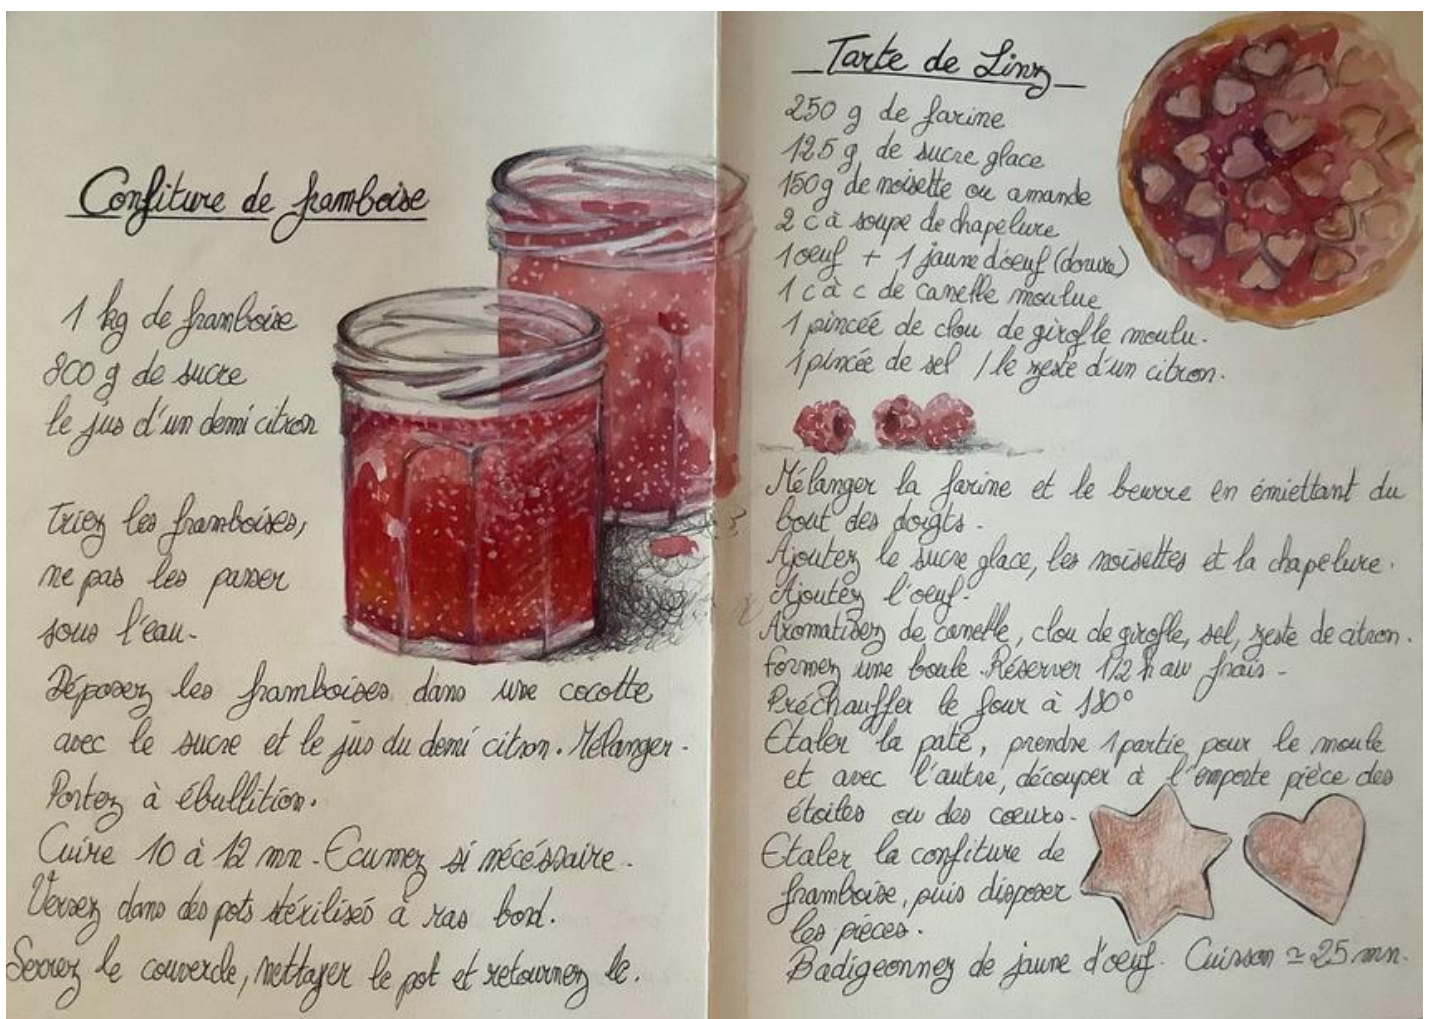 Confiture de framboise
1 kg de framboise
800 g de sucre
le jus d'un demi citron
Triez les framboises,
ne pas les passer
sous l'eau.
Déposez les framboises dans une cocotte
avec le sucre et le jus du demi citron. Mélanger.
Portez à ébullition.
Cuire 10 à 12 mn. Ecumez si nécéssaire.
Versez dans des pots stérilisés à ras bord.
Serrez le couvercle, nettoyer le pot et retournez le.
Tarte de Linz
250 g de farine
125 g de sucre glace
150g de noisette ou amande
2 c à soupe de chapelure
1 oeuf + 1 jaune d'oeuf (dorure)
1 c à c de canelle moulue
1 pincée de clou de girofle moulu.
1 pincée de sel / le zeste d'un citron.
Mélanger la farine et le beurre en émiettant du
bout des doigts.
Ajoutez le sucre glace, les noisettes et la chapelure.
Ajoutez l'oeuf.
Aromatisez de canelle, clou de girofle, sel, zeste de citron.
Formez une boule. Réserver 1/2 h au frais.
Préchauffer le four à 180°
Etaler la pate, prendre 1 partie pour le moule
et avec l'autre, découper à l'emporte pièce des
étoiles ou des cœurs.
Etaler la confiture de
framboise, puis disposer
les pièces.
Badigeonnez de jaune d'oeuf. Cuisson ≃ 25 mn.